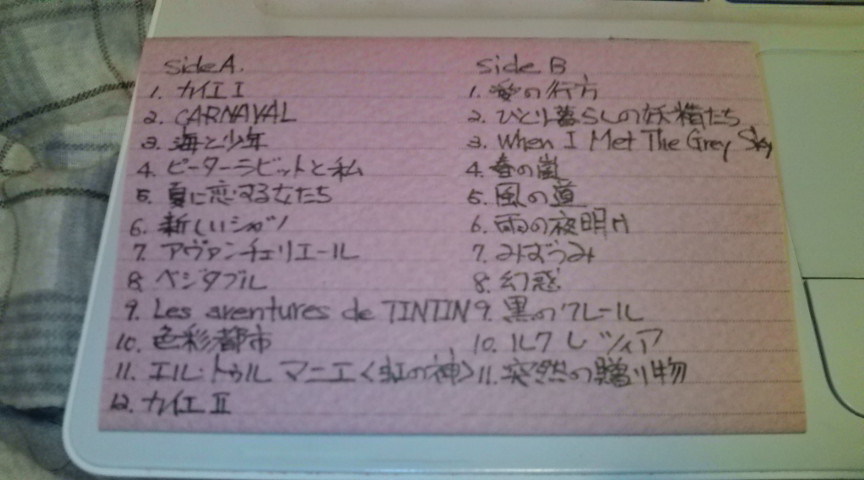 Side A.
1. カイエ I
2. CARNAVAL
3. 海と少年
4. ピーターラビットと私
5. 夏に恋する女たち
6. 新しいシャツ
7. アヴァンチュリエール
8. ベジタブル
9. Les aventures de TINTIN
10. 色彩都市
11. エル・トゥル マニエ〈虹の神〉
12. カイエ II
Side B
1. 愛の行方
2. ひとり暮らしの妖精たち
3. When I Met The Grey Sky
4. 春の嵐
5. 風の道
6. 雨の夜明け
7. みずうみ
8. 幻惑
9. 黒のクレール
10. ルクレツィア
11. 突然の贈り物